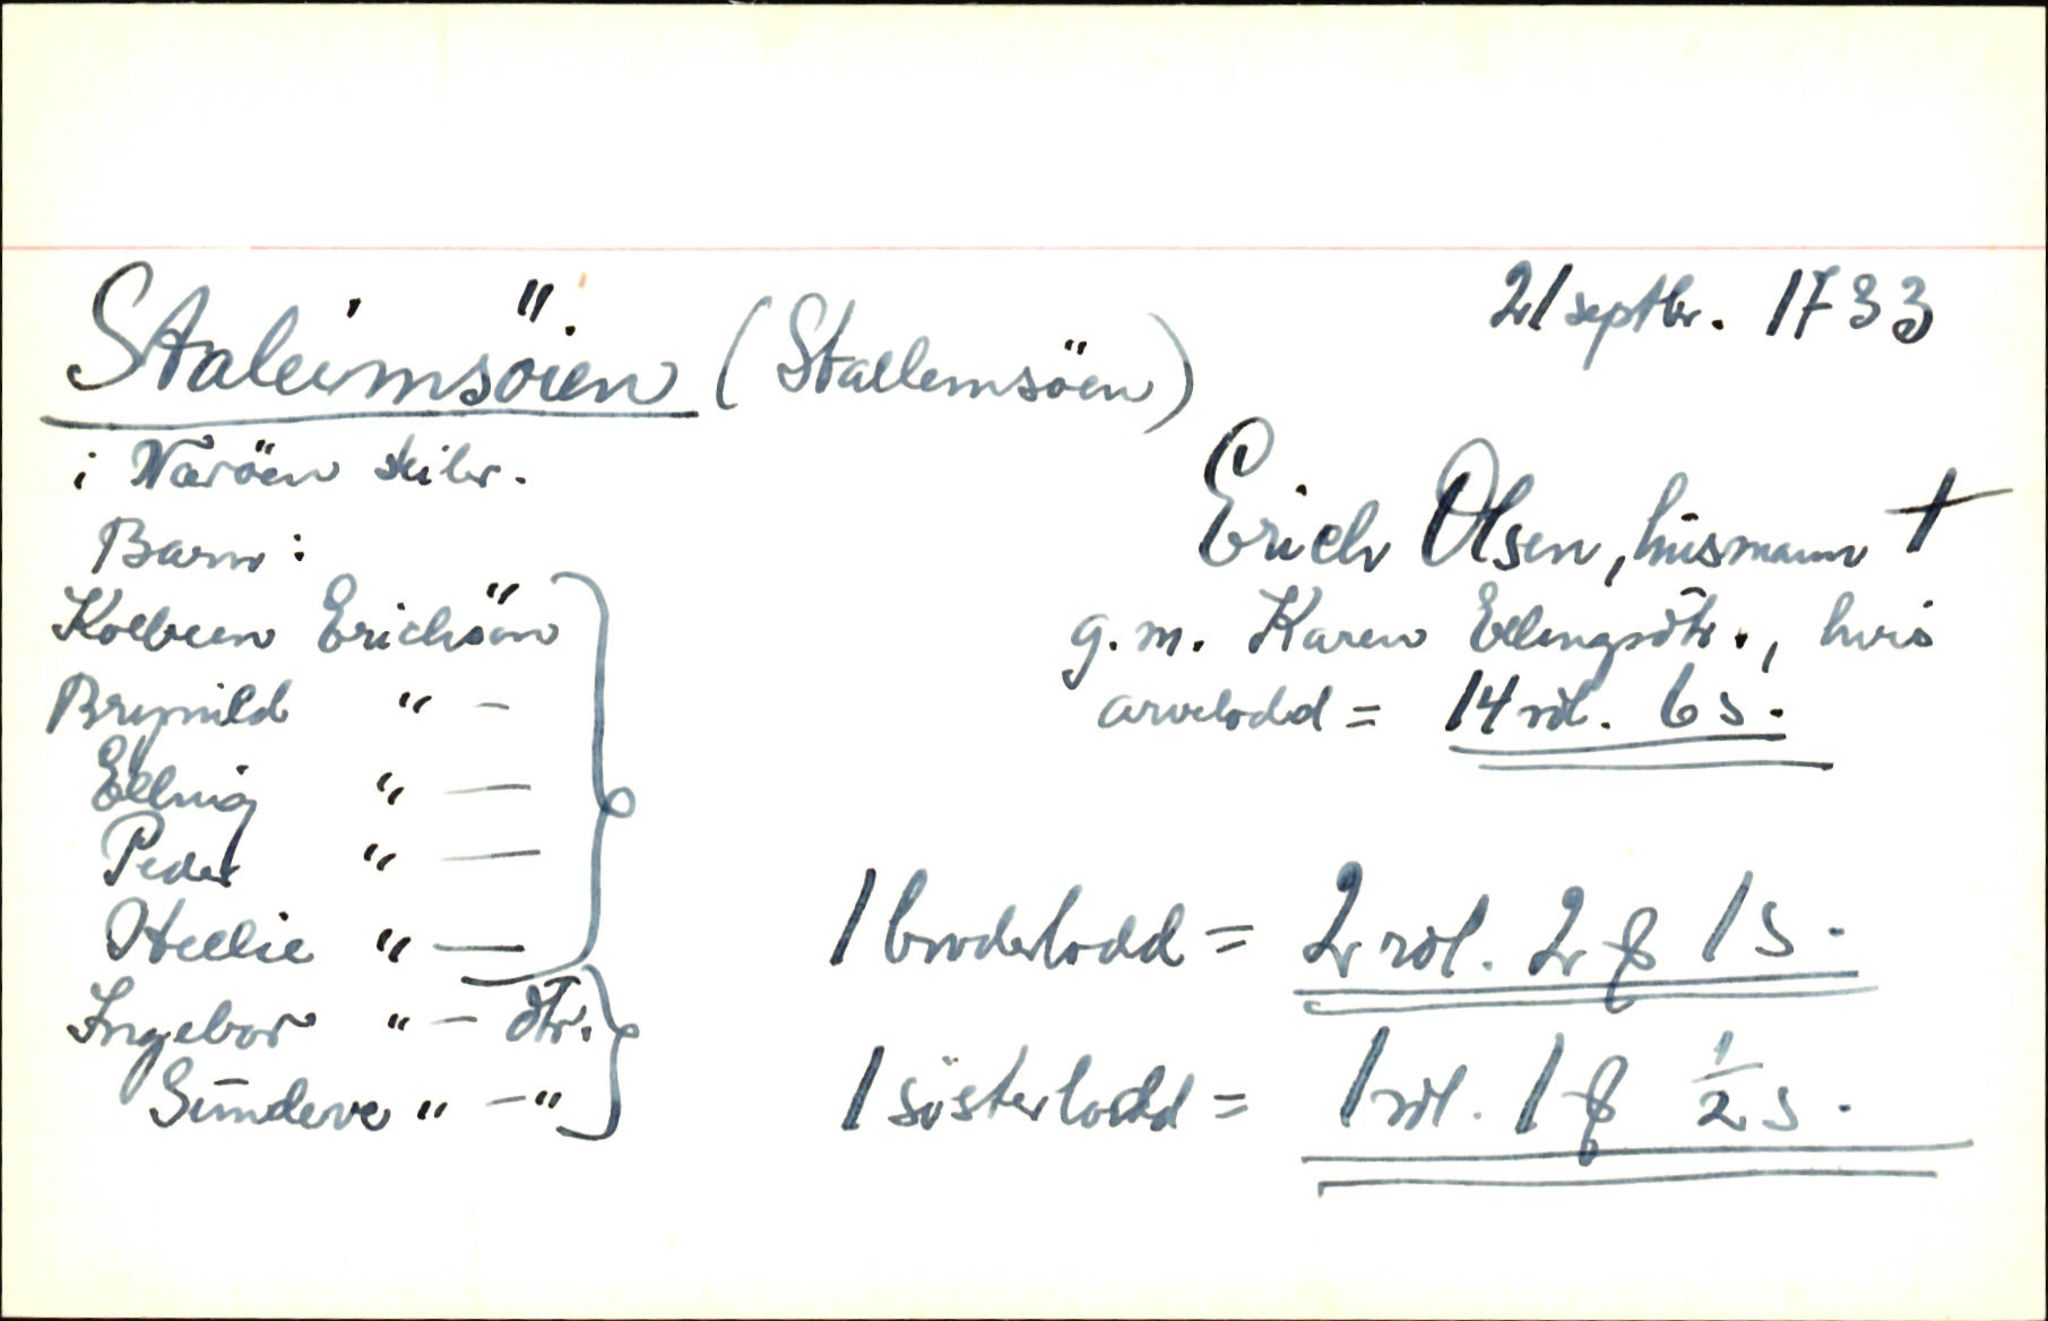 21 septbr. 1733
Staleimsöien (Stallemsöen)
i Næröen skibr.
Erich Olsen, husmann †
g. m. Karen Ellingsdtr., hvis
arvelodd = 14 rdl. 6 s.
Barn:
Kolbeen Erichsön
Brynild " —
Elling " —
Peder " —
Hellie " —
Ingebor " — dtr.
Sündeve " — "
1 broderlodd = 2 rdl. 2 ℔ 1 s.
1 søsterlodd = 1 rdl. 1 ℔ 1/2 s.